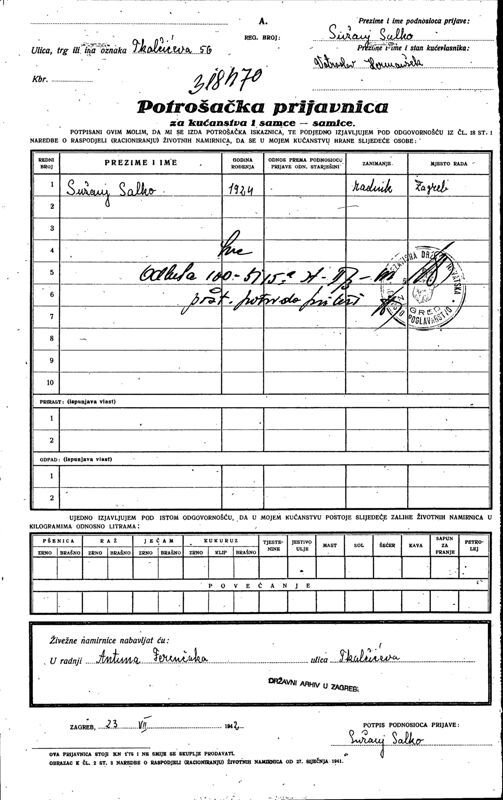 A.
REG. BROJ:
Prezime i ime podnosioca prijave:
Sužanj Salko
Ulica, trg ili ina oznaka Tkalčićeva 56
Prezime i ime i stan kućevlasnika:
Kbr.
Potrošačka prijavnica
za kućanstva i samce — samice.
POTPISANI OVIM MOLIM, DA MI SE IZDA POTROŠAČKA ISKAZNICA, TE PODJEDNO IZJAVLJUJEM POD ODGOVORNOŠĆU IZ ČL. 18 ST. 1
NAREDBE O RASPODJELI (RACIONIRANJU) ŽIVOTNIH NAMIRNICA, DA SE U MOJEM KUĆANSTVU HRANE SLIJEDEĆE OSOBE:
REDNI BROJ PREZIME I IME GODINA ROĐENJA ODNOS PREMA PODNOSIOCU PRIJAVE ODN. STARJEŠINI ZANIMANJE MJESTO RADA
1 Sužanj Salko 1924 radnik Zagreb
2
3
4
5
6
7
8
9
10
PRIRAST: (ispunjava vlast)
1
2
ODPAD: (ispunjava vlast)
1
2
UJEDNO IZJAVLJUJEM POD ISTOM ODGOVORNOŠĆU, DA U MOJEM KUĆANSTVU POSTOJE SLIJEDEĆE ZALIHE ŽIVOTNIH NAMIRNICA U
KILOGRAMIMA ODNOSNO LITRAMA:
PŠENICA RAŽ JEČAM KUKURUZ TJESTENINE JESTIVO ULJE MAST SOL ŠEĆER KAVA SAPUN ZA PRANJE PETROLEJ
ZRNO BRAŠNO ZRNO BRAŠNO ZRNO BRAŠNO ZRNO KLIP BRAŠNO
POVEĆANJE
Živežne namirnice nabavljat ću:
U radnji Antuna Ferenčaka ulica Tkalčićeva
DRŽAVNI ARHIV U ZAGREBU
ZAGREB, 23 VII 1942
POTPIS PODNOSIOCA PRIJAVE:
Sužanj Salko
OVA PRIJAVNICA STOJI KN 1.75 I NE SMIJE SE SKUPLJE PRODAVATI.
OBRAZAC K ČL. 2 ST. 3 NAREDBE O RASPODJELI (RACIONIRANJU) ŽIVOTNIH NAMIRNICA OD 27. SIJEČNJA 1941.